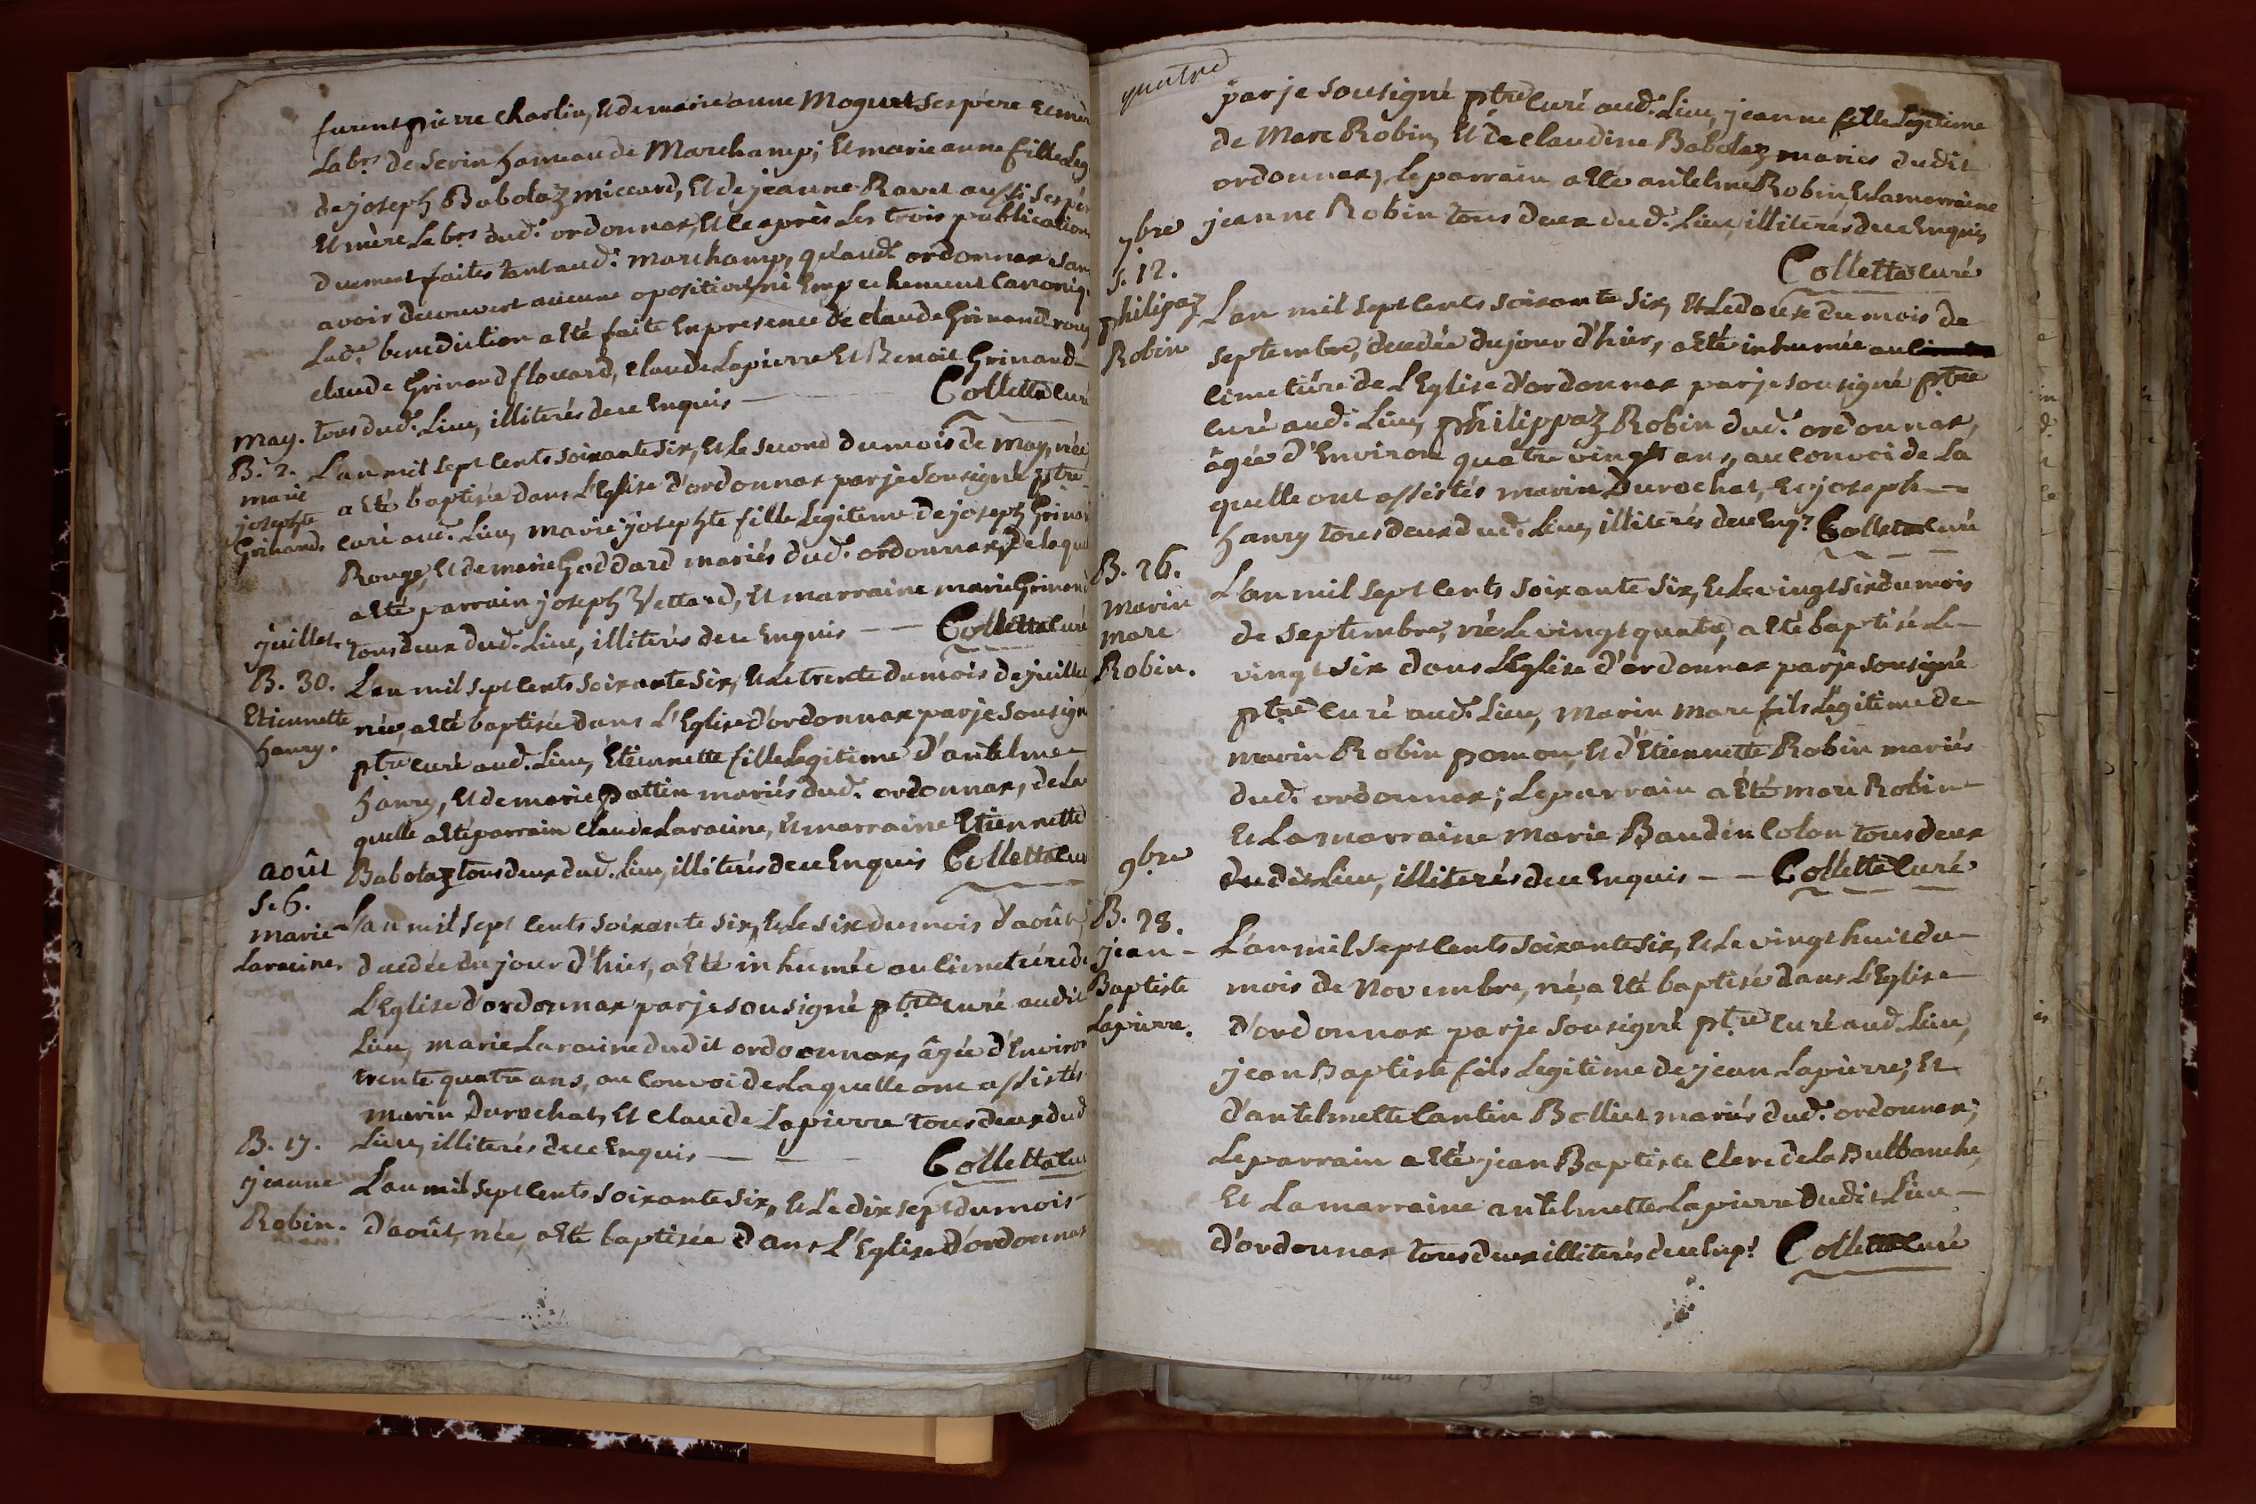 furent pierre charlin, et de marie anne Moguet ses père et mèr
Labrs de Serin hameau de Marchamp; et marie anne fille Leg
de joseph Babolaz miccard, et de jeanne Ravet aussi ses pèr
et mère Labrs dud. ordonnax, et ce après les trois publication
duement faites tant aud. marchamp, qu'aud. ordonnax sans
avoir decouvert aucune oposition, ni Empechement Canoniq.
Lad.e benediction a Eté faite En presence de claude Grinand roug
claude Grinand flouard, claude Lapierre Et Benoit Grinand
tous dud. Lieu, illiterés de ce Enquis — Colletta curé
may.
B. 2.
marie
josephte
Grinand.
L'an mil sept cents soixante six, et le second du mois de may, née
a Eté baptisée dans l'Eglise d'ordonnax par je sousigné ptre
curé aud. Lieu, marie josephte fille Legitime de joseph Grinan
Rouge, et de marie Goddard mariés dud. ordonnax, de laquel
a Eté parrain joseph Vettard, et marraine marie Grinand
tous deux dud. Lieu, illiterés de ce Enquis — — Colletta curé
juillet.
B. 30.
Etiennette
hanry.
L'an mil sept cents soixante six, et le trente du mois de juillet
née, a Eté baptisée dans L'Eglise d'ordonnax par je sousign
ptre curé aud. Lieu, Etiennette fille Legitime d'antelme
hanry, et de marie pottin mariés dud. ordonnax, de la
quelle a Eté parrain claude Laracine, et marraine Etiennette
Babolaz tous deux dud. lieu, illiterés de ce Enquis Colletta cur
août
S. 6.
marie
Laracine.
L'an mil sept cents soixante six, et le six du mois d'août,
decedée du jour d'hier, a Eté inhumée au cimetiére de
L'Eglise d'ordonnax par je sousigné ptre curé audit
Lieu, marie Laracine dudit ordonnax, âgée d'Environ
trente quatre ans, au convoi de laquelle ont assistés
marin Durochat, et claude Lapierre tous deux dud
Lieu, illiterés de ce Enquis — — — Colletta cur
B. 17.
jeanne
Robin.
L'an mil sept cents soixante six, et le dix sept du mois
d'août, née, a Eté baptisée dans L'Eglise d'ordonnax
quatre
par je sousigné ptre curé aud. Lieu, jeanne fille Legitime
de Marc Robin, et de claudine Babolaz mariés dudit
ordonnax, Le parrain a Eté antelme Robin, et la marraine
jeanne Robin tous deux dud. Lieu, illiterés de ce Enquis
Colletta curé
7bre
S. 12.
philipaz
Robin
L'an mil sept cents soixante six, et Le douse du mois de
septembre, decedée du jour d'hier, a Eté inhumée au
cimetiére de L'Eglise d'ordonnax par je sousigné ptre
curé aud. Lieu, philippaz Robin dud. ordonnax,
âgée d'Environ quatre vingt ans, au convoi de La
quelle ont assistés marin Durochat, et joseph —
hanry tous deux dud. Lieu, illiterés de ce Enq.s Colletta curé
B. 26.
Marin
marc
Robin.
L'an mil sept cents soixante six, et Le vingt six du mois
de septembre, né Le vingt quatre, a Eté baptisé Le
vingt six dans L'Eglise d'ordonnax par je sousigné
ptre curé aud. Lieu, Marin marc fils Legitime de
marin Robin pomon, et d'Etiennette Robin mariés
dud. ordonnax; Le parrain a Eté marc Robin
et La marraine Marie Baudin Colon tous deux
dudit Lieu, illiterés de ce Enquis — — Colletta curé
9bre
B. 28.
jean
Baptiste
Lapierre.
L'an mil sept cents soixante six, et Le vingt huit du
mois de Novembre, né, a Eté baptisé dans L'Eglise
d'ordonnax par je sousigné ptre curé aud. Lieu,
jean Baptiste fils Legitime de jean Lapierre, et
d'antelmette Cantin Bolliet mariés dud. ordonnax;
Le parrain a Eté jean Baptiste Clerc de La Bulbanche,
et La marraine antelmette Lapierre dudit Lieu —
d'ordonnax tous deux illiterés de ce Enq.s Colletta curé